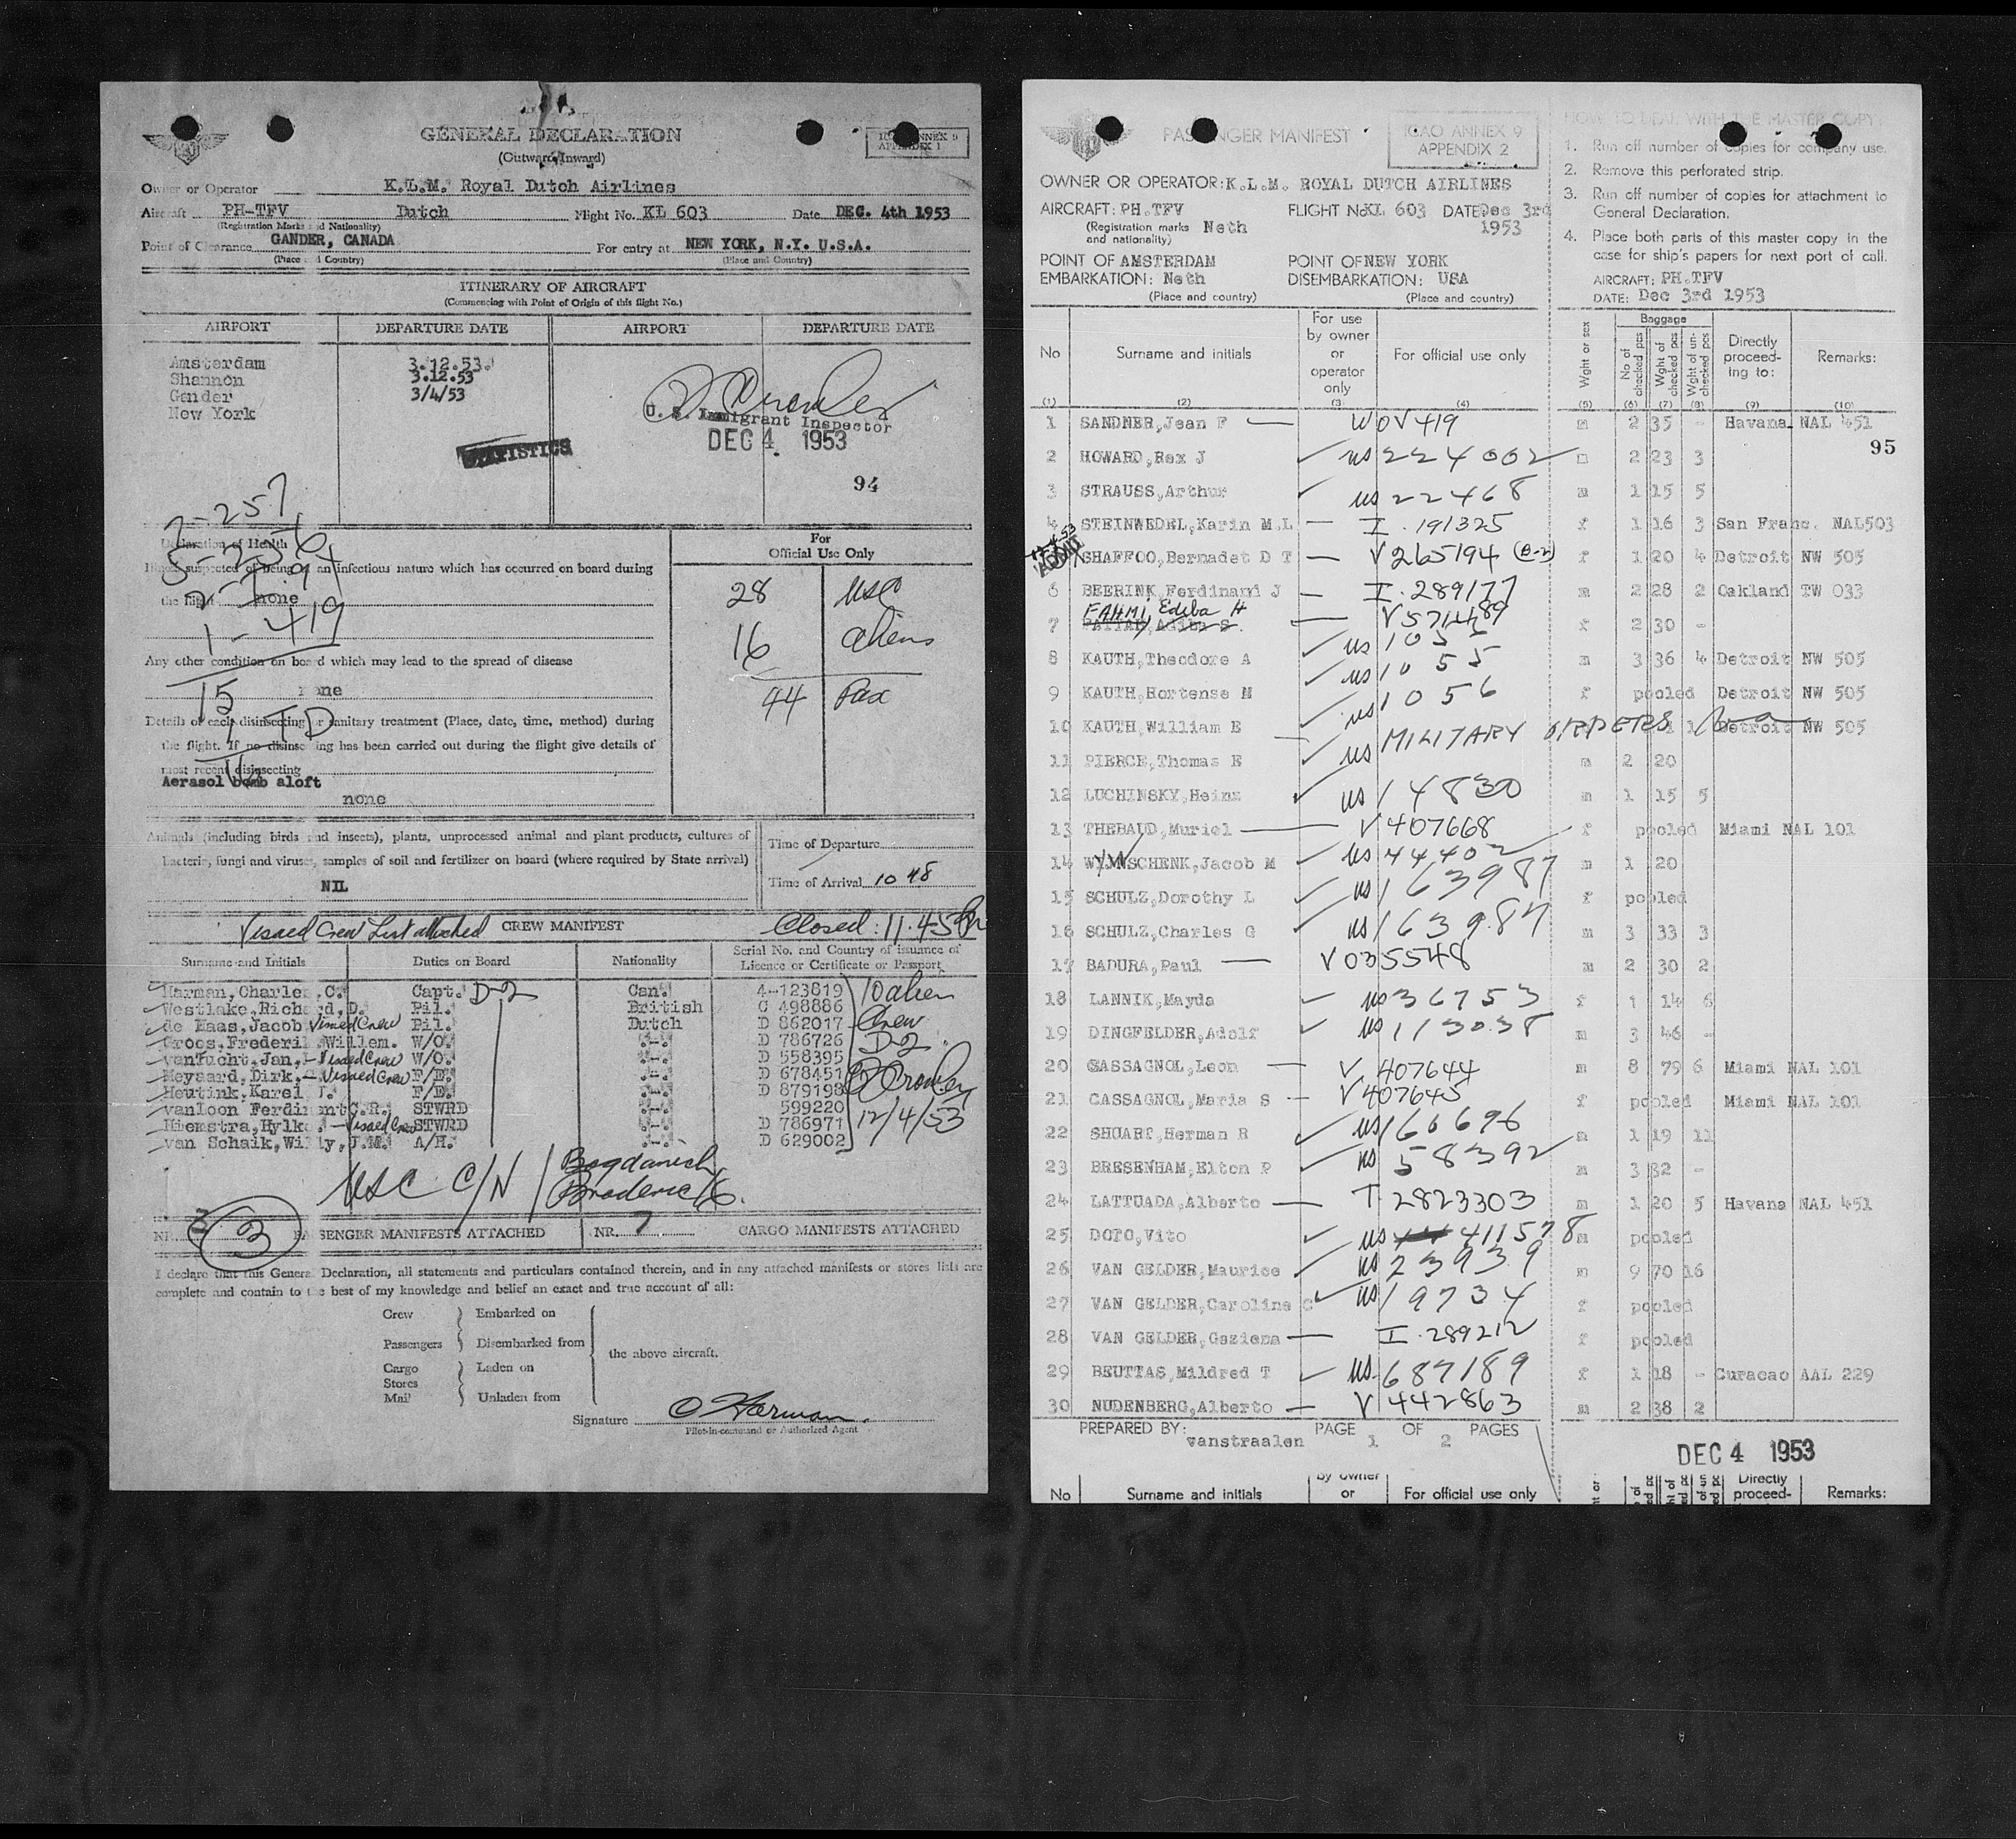 GENERAL DECLARATION
(Outward/Inward)
ICAO ANNEX 9
APPENDIX 1
Owner or Operator K.L.M. Royal Dutch Airlines
Aircraft PH-TFV Dutch Flight No. KL 603 Date DEC. 4th 1953
(Registration Marks and Nationality)
Point of Clearance GANDER, CANADA For entry at NEW YORK, N.Y. U.S.A.
(Place and Country) (Place and Country)
ITINERARY OF AIRCRAFT
(Commencing with Point of Origin of this flight No.)
AIRPORT DEPARTURE DATE AIRPORT DEPARTURE DATE
Amsterdam 3.12.53.
Shannon 3.12.53
Gander 3/4/53
New York
U. S. Immigrant Inspector
DEC 4 1953
STATISTICS
94
Declaration of Health
Illness suspected of being of an infectious nature which has occurred on board during
the flight none
1 - 419
Any other condition on board which may lead to the spread of disease
none
15
Details of each disinsecting or sanitary treatment (Place, date, time, method) during
the flight. If no disinsecting has been carried out during the flight give details of
most recent disinsecting
Aerasol bomb aloft
none
For
Official Use Only
28 USC
16 aliens
44 Pax
Animals (including birds and insects), plants, unprocessed animal and plant products, cultures of
bacteria, fungi and viruses, samples of soil and fertilizer on board (where required by State arrival)
NIL
Time of Departure
Time of Arrival 10 48
Visaed Crew List attached CREW MANIFEST Closed: 11.45
Surname and Initials Duties on Board Nationality Serial No. and Country of issuance of
Licence or Certificate or Passport
Harman, Charles, C. Capt. D-2 Can. 4-123819 10 alien
Westlake, Richard, D. Pil. British C 498886
de Haas, Jacob Visaed Crew Pil. Dutch D 862017 Crew
Croos, Frederik Willem. W/O. -"- D 786726 D-2
van Tucht, Jan, - Visaed Crew W/O. -"- D 558395
Meyaard, Dirk, - Visaed Crew F/E. -"- D 678451 Crowley
Heutink, Karel F/E. -"- D 879198
vanLoon Ferdinent C.R. STWRD -"- 599220
Hiemstra, Hylke. - Visaed Crew STWRD -"- D 786971 12/4/53
van Schaik, Willy, J.M. A/H. -"- D 629002
USC C/N / Bogdanich
Broderick
NR. 3 PASSENGER MANIFESTS ATTACHED NR. 7 CARGO MANIFESTS ATTACHED
I declare that this General Declaration, all statements and particulars contained therein, and in any attached manifests or stores lists are
complete and contain to the best of my knowledge and belief an exact and true account of all:
Crew } Embarked on
Passengers } Disembarked from
the above aircraft.
Cargo } Laden on
Stores
Mail } Unladen from
Signature C Harman.
Pilot-in-command or Authorized Agent
PASSENGER MANIFEST
ICAO ANNEX 9
APPENDIX 2
HOW TO DEAL WITH THE MASTER COPY:
1. Run off number of copies for company use.
2. Remove this perforated strip.
3. Run off number of copies for attachment to
General Declaration.
4. Place both parts of this master copy in the
case for ship's papers for next port of call.
AIRCRAFT: PH.TFV
DATE: Dec 3rd 1953
OWNER OR OPERATOR: K.L.M. ROYAL DUTCH AIRLINES
AIRCRAFT: PH.TFV FLIGHT No KL 603 DATE Dec 3rd
(Registration marks Neth 1953
and nationality)
POINT OF AMSTERDAM POINT OF NEW YORK
EMBARKATION: Neth DISEMBARKATION: USA
(Place and country) (Place and country)
No Surname and initials For use by owner or operator only For official use only Wght or sex Baggage No of checked pcs Wght of checked pcs Wght of un-checked pcs Directly proceed-ing to: Remarks:
(1) (2) (3) (4) (5) (6) (7) (8) (9) (10)
1 SANDNER, Jean F — WOV 419 m 2 35 - Havana NAL 451
95
2 HOWARD, Rex J ✓ us 224002 m 2 23 3
3 STRAUSS, Arthur ✓ us 22468 m 1 15 5
4 STEINWEDEL, Karin M.L — I. 191325 f 1 16 3 San Franc. NAL503
ADMIT SHAFFOO, Bermadet D T — V265194 (B-2) f 1 20 4 Detroit NW 505
6 BEERINK, Ferdinand J — I. 289177 m 2 28 2 Oakland TW 033
FAHMI, Ediba H
7 — V571489 f 2 30 -
8 KAUTH, Theodore A ✓ us 1055 m 3 36 4 Detroit NW 505
9 KAUTH, Hortense M ✓ us 1055 f pooled Detroit NW 505
10 KAUTH, William E ✓ us 1056 1 1 Detroit NW 505
11 PIERCE, Thomas E ✓ us MILITARY ORDERS m 2 20
12 LUCHINSKY, Heinz ✓ us 14830 m 1 15 5
13 THEBAUD, Muriel — V407668 f pooled Miami NAL 101
14 WYNSCHENK, Jacob M ✓ us 44402 m 1 20
15 SCHULZ, Dorothy L ✓ us 163987 f pooled
16 SCHULZ, Charles G ✓ us 163987 m 3 33 3
17 BADURA, Paul — V035548 m 2 30 2
18 LANNIK, Mayda ✓ us 36753 f 1 14 6
19 DINGFELDER, Adolf ✓ us 113038 m 3 46 -
20 CASSAGNOL, Leon — V. 407644 m 8 79 6 Miami NAL 101
21 CASSAGNOL, Maria S — V407645 f pooled Miami NAL 101
22 SHUART, Herman R ✓ us 166696 m 1 19 11
23 BRESENHAM, Elton P ✓ us 58392 m 3 32 -
24 LATTUADA, Alberto — T 2823303 m 1 20 5 Havana NAL 451
25 DOTO, Vito ✓ us 411578 m pooled
26 VAN GELDER, Maurice ✓ us 23939 m 9 70 16
27 VAN GELDER, Caroline C ✓ us 19734 f pooled
28 VAN GELDER, Geziena — I. 289212 f pooled
29 BEUTTAS, Mildred T ✓ us 687189 f 1 18 - Curacao AAL 229
30 NUDENBERG, Alberto — V 442863 m 2 38 2
PREPARED BY: vanstraalen PAGE 1 OF 2 PAGES
DEC 4 1953
No Surname and initials by owner or For official use only Directly proceed- Remarks: